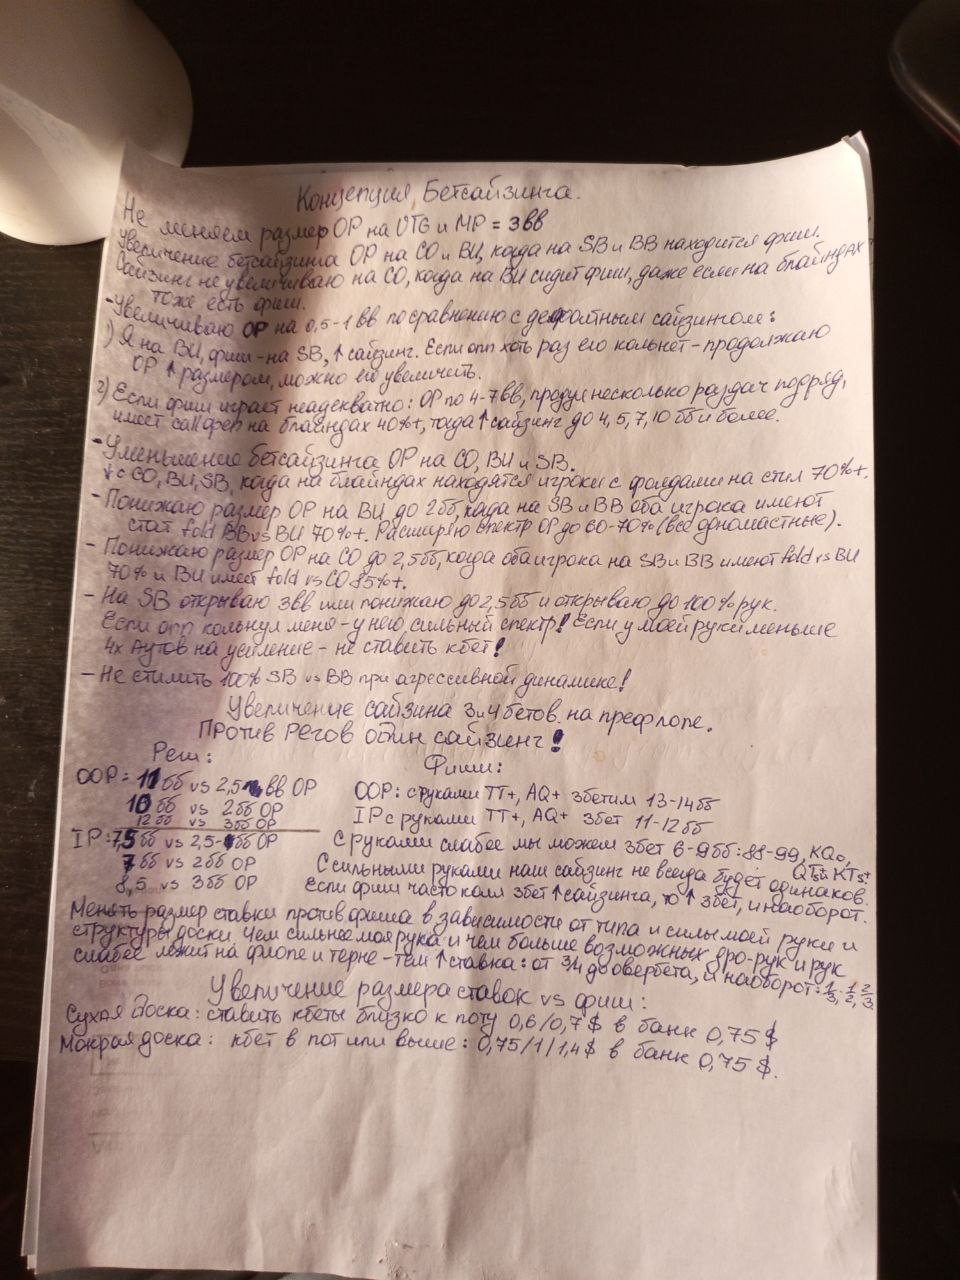 Концепция Бетсайзинга.
Не меняем размер OP на UTG и MP = 3вв
Увеличение бетсайзинга OP на CO и BU, когда на SB и BB находится фиш.
Сайзинг не увеличиваю на CO, когда на BU сидит фиш, даже если на блайндах
тоже есть фиш.
- Увеличиваю OP на 0,5-1 вв по сравнению с дефолтным сайзингом:
1) Я на BU, фиш - на SB, ↑ сайзинг. Если опп хоть раз его кольнет - продолжаю
OP ↑ размером, можно его увеличить.
2) Если фиш играет неадекватно: OP по 4-7вв, продул несколько раздач подряд,
имеет callpref на блайндах 40%+, тогда ↑ сайзинг до 4, 5, 7, 10 бб и более.
- Уменьшение бетсайзинга OP на CO, BU и SB.
↓ с CO, BU, SB, когда на блайндах находятся игроки с фолдами на стил 70%+.
- Понижаю размер OP на BU до 2бб, когда на SB и BB оба игрока имеют
стат fold BB vs BU 70%+. Расширяю спектр OP до 60-70% (все одномастные).
- Понижаю размер OP на CO до 2,5бб, когда оба игрока на SB и BB имеют fold vs BU
70% и BU имеет fold vs CO 85%+.
- На SB открываю 3вв или понижаю до 2,5бб и открываю до 100% рук.
Если опп кольнул меня - у него сильный спектр! Если у моей руки меньше
4х Аутов на усиление - не ставить кбет!
- Не стилить 100% SB vs BB при агрессивной динамике!
Увеличение сайзина 3и4бетов на префлопе.
Против Регов один сайзинг!
Реги: Фиши:
OOP = 11бб vs 2,5 вв OP
10бб vs 2бб OP OOP: с руками TT+, AQ+ 3бетим 13-14бб
12бб vs 3бб OP IP с руками TT+, AQ+ 3бет 11-12бб
IP: 7,5бб vs 2,5 бб OP С руками слабее мы можем 3бет 6-9бб: 88-99, KQo,
QTs+ KTs+
7бб vs 2бб OP С сильными руками наш сайзинг не всегда будет одинаков.
8,5 vs 3бб OP Если фиш часто колл 3бет ↑ сайзинга, то ↑ 3бет, и наоборот.
Менять размер ставки против фиша в зависимости от типа и силы моей руки и
структуры доски. Чем сильнее моя рука и чем больше возможных дро-рук и рук
слабее лежит на флопе и терне - тем ↑ ставка: от 3/4 до овербета, и наоборот: 1/3, 1/2, 2/3.
Увеличение размера ставок vs фиш:
Сухая Доска: ставить кбеты близко к поту 0,6/0,7$ в банк 0,75$
Мокрая доска: кбет в пот или выше: 0,75/1/1,4$ в банк 0,75$.